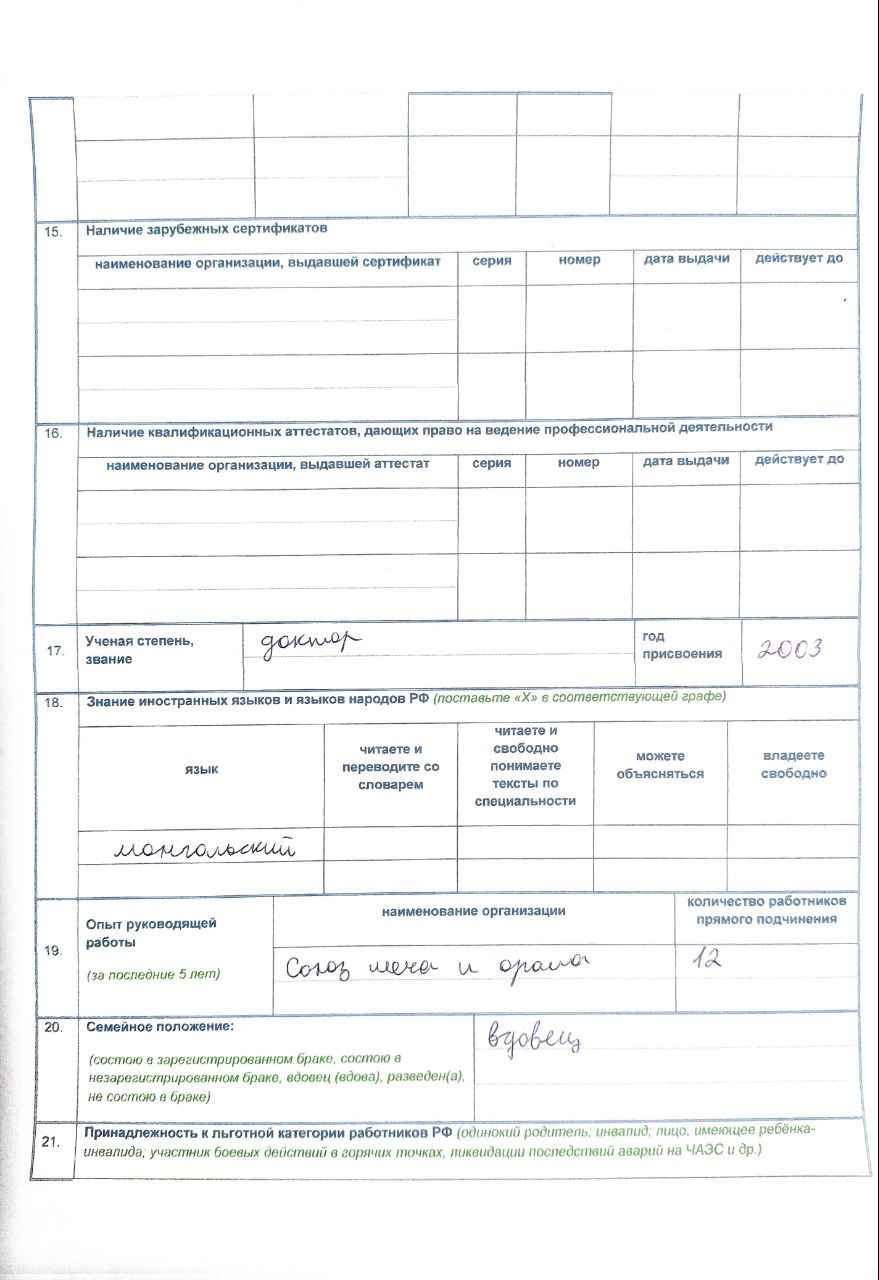 15. Наличие зарубежных сертификатов
наименование организации, выдавшей сертификат серия номер дата выдачи действует до
16. Наличие квалификационных аттестатов, дающих право на ведение профессиональной деятельности
наименование организации, выдавшей аттестат серия номер дата выдачи действует до
17. Ученая степень,
звание
доктор
год
присвоения
2003
18. Знание иностранных языков и языков народов РФ (поставьте «Х» в соответствующей графе)
язык
читаете и
переводите со
словарем
читаете и
свободно
понимаете
тексты по
специальности
можете
объясняться
владеете
свободно
монгольский
19. Опыт руководящей
работы
(за последние 5 лет)
наименование организации
количество работников
прямого подчинения
Союз меча и орала
12
20. Семейное положение:
(состою в зарегистрированном браке, состою в
незарегистрированном браке, вдовец (вдова), разведен(а),
не состою в браке)
вдовец
21. Принадлежность к льготной категории работников РФ (одинокий родитель; инвалид; лицо, имеющее ребёнка-
инвалида; участник боевых действий в горячих точках, ликвидации последствий аварий на ЧАЭС и др.)